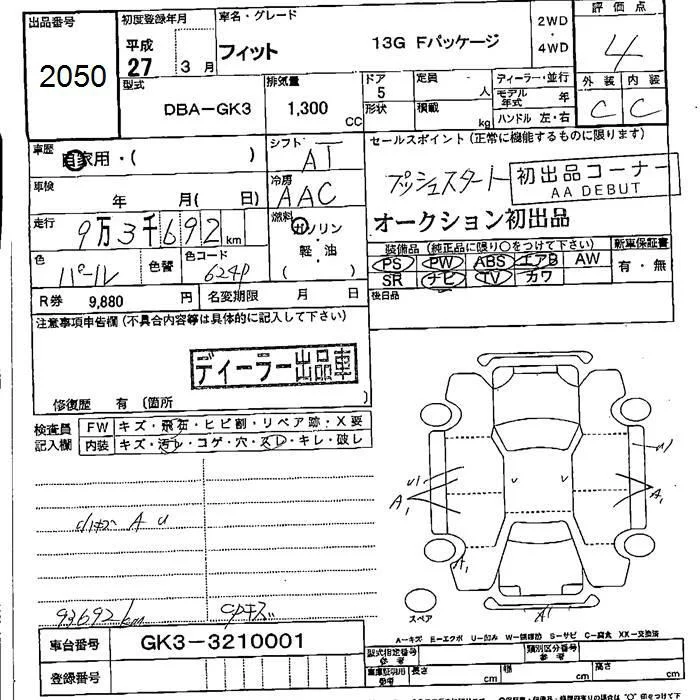 出品番号
2050
初度登録年月
平成
27 3 月
車名・グレード
フィット 13G Fパッケージ
2WD
・
4WD
評価点
4
型式
DBA-GK3
排気量
1,300 CC
ドア
5
形状
定員 人
積載 kg
ディーラー・並行
モデル年式 年
ハンドル 左・右
外装 内装
C C
車歴
自家用・( )
シフト
AT
車検
年 月( 日)
冷房
AAC
走行
9万3千692 km
燃料
ガソリン
・
軽・油
( )
色
パール
色替
色コード
624P
R券 9,880 円
名変期限 月 日
セールスポイント(正常に機能するものに限ります)
プッシュスタート
初出品コーナー
AA DEBUT
オークション初出品
装備品(純正品に限り○をつけて下さい)
新車保証書
PS PW ABS エアB AW
SR ナビ TV カワ
有・無
後日品
注意事項申告欄(不具合内容等は具体的に記入して下さい)
ディーラー出品車
修復歴 有 (箇所 )
検査員
記入欄
FW キズ・飛石・ヒビ割・リペア跡・X要
内装 キズ・汚レ・コゲ・穴・スレ・キレ・破レ
A U
93692km
キズ
U1
A1
U
U
U1
A1
A1
A1
スペア
A-キズ E-エクボ U-凹み W-補修跡 S-サビ C-腐食 XX-交換済
車台番号 GK3-3210001
登録番号
型式指定番号
参考
類別区分番号
参考
車庫証明用
参考
長さ cm
幅 cm
高さ cm